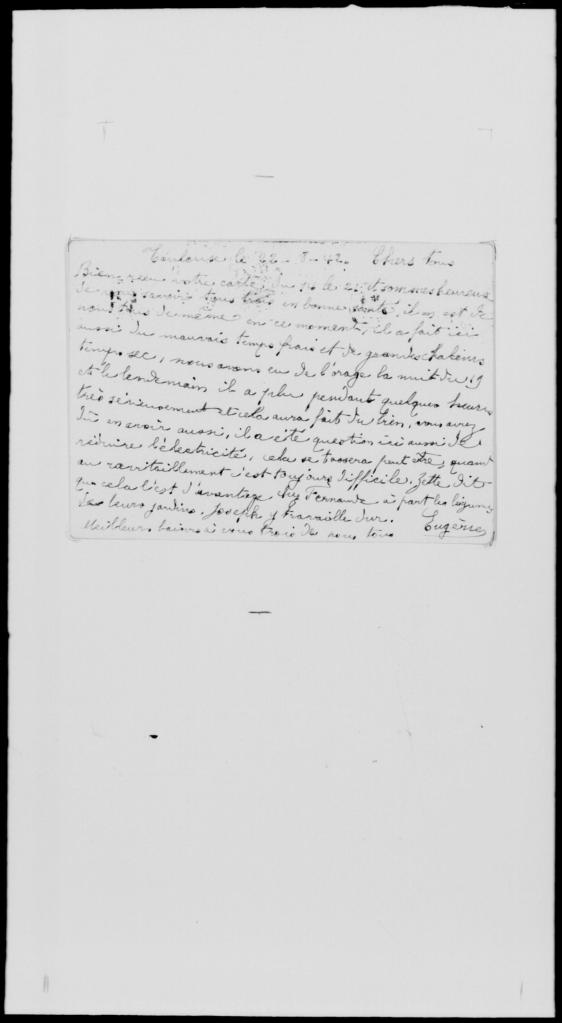 Toulouse le 22-8-42. Chers tous
Bien reçu votre carte du 14 le 21 et sommes heureux
de vous savoir tous trois en bonne santé, il en est de
nous tous de même en ce moment, il a fait ici
aussi du mauvais temps frais et de grandes chaleurs
temps sec, nous avons eu de l'orage la nuit du 19
et le lendemain il a plu pendant quelques heures
très sérieusement et cela aura fait du bien, vous avez
dû en avoir aussi, il a été question ici aussi de
réduire l'électricité, cela se tassera peut être, quant
au ravitaillement c'est toujours difficile. Zette dit
que cela l'est d'avantage chez Fernande à part les légumes
de leurs jardins. Joseph y travaille dur.
Meilleurs baisers à vous trois de nous tous Eugène